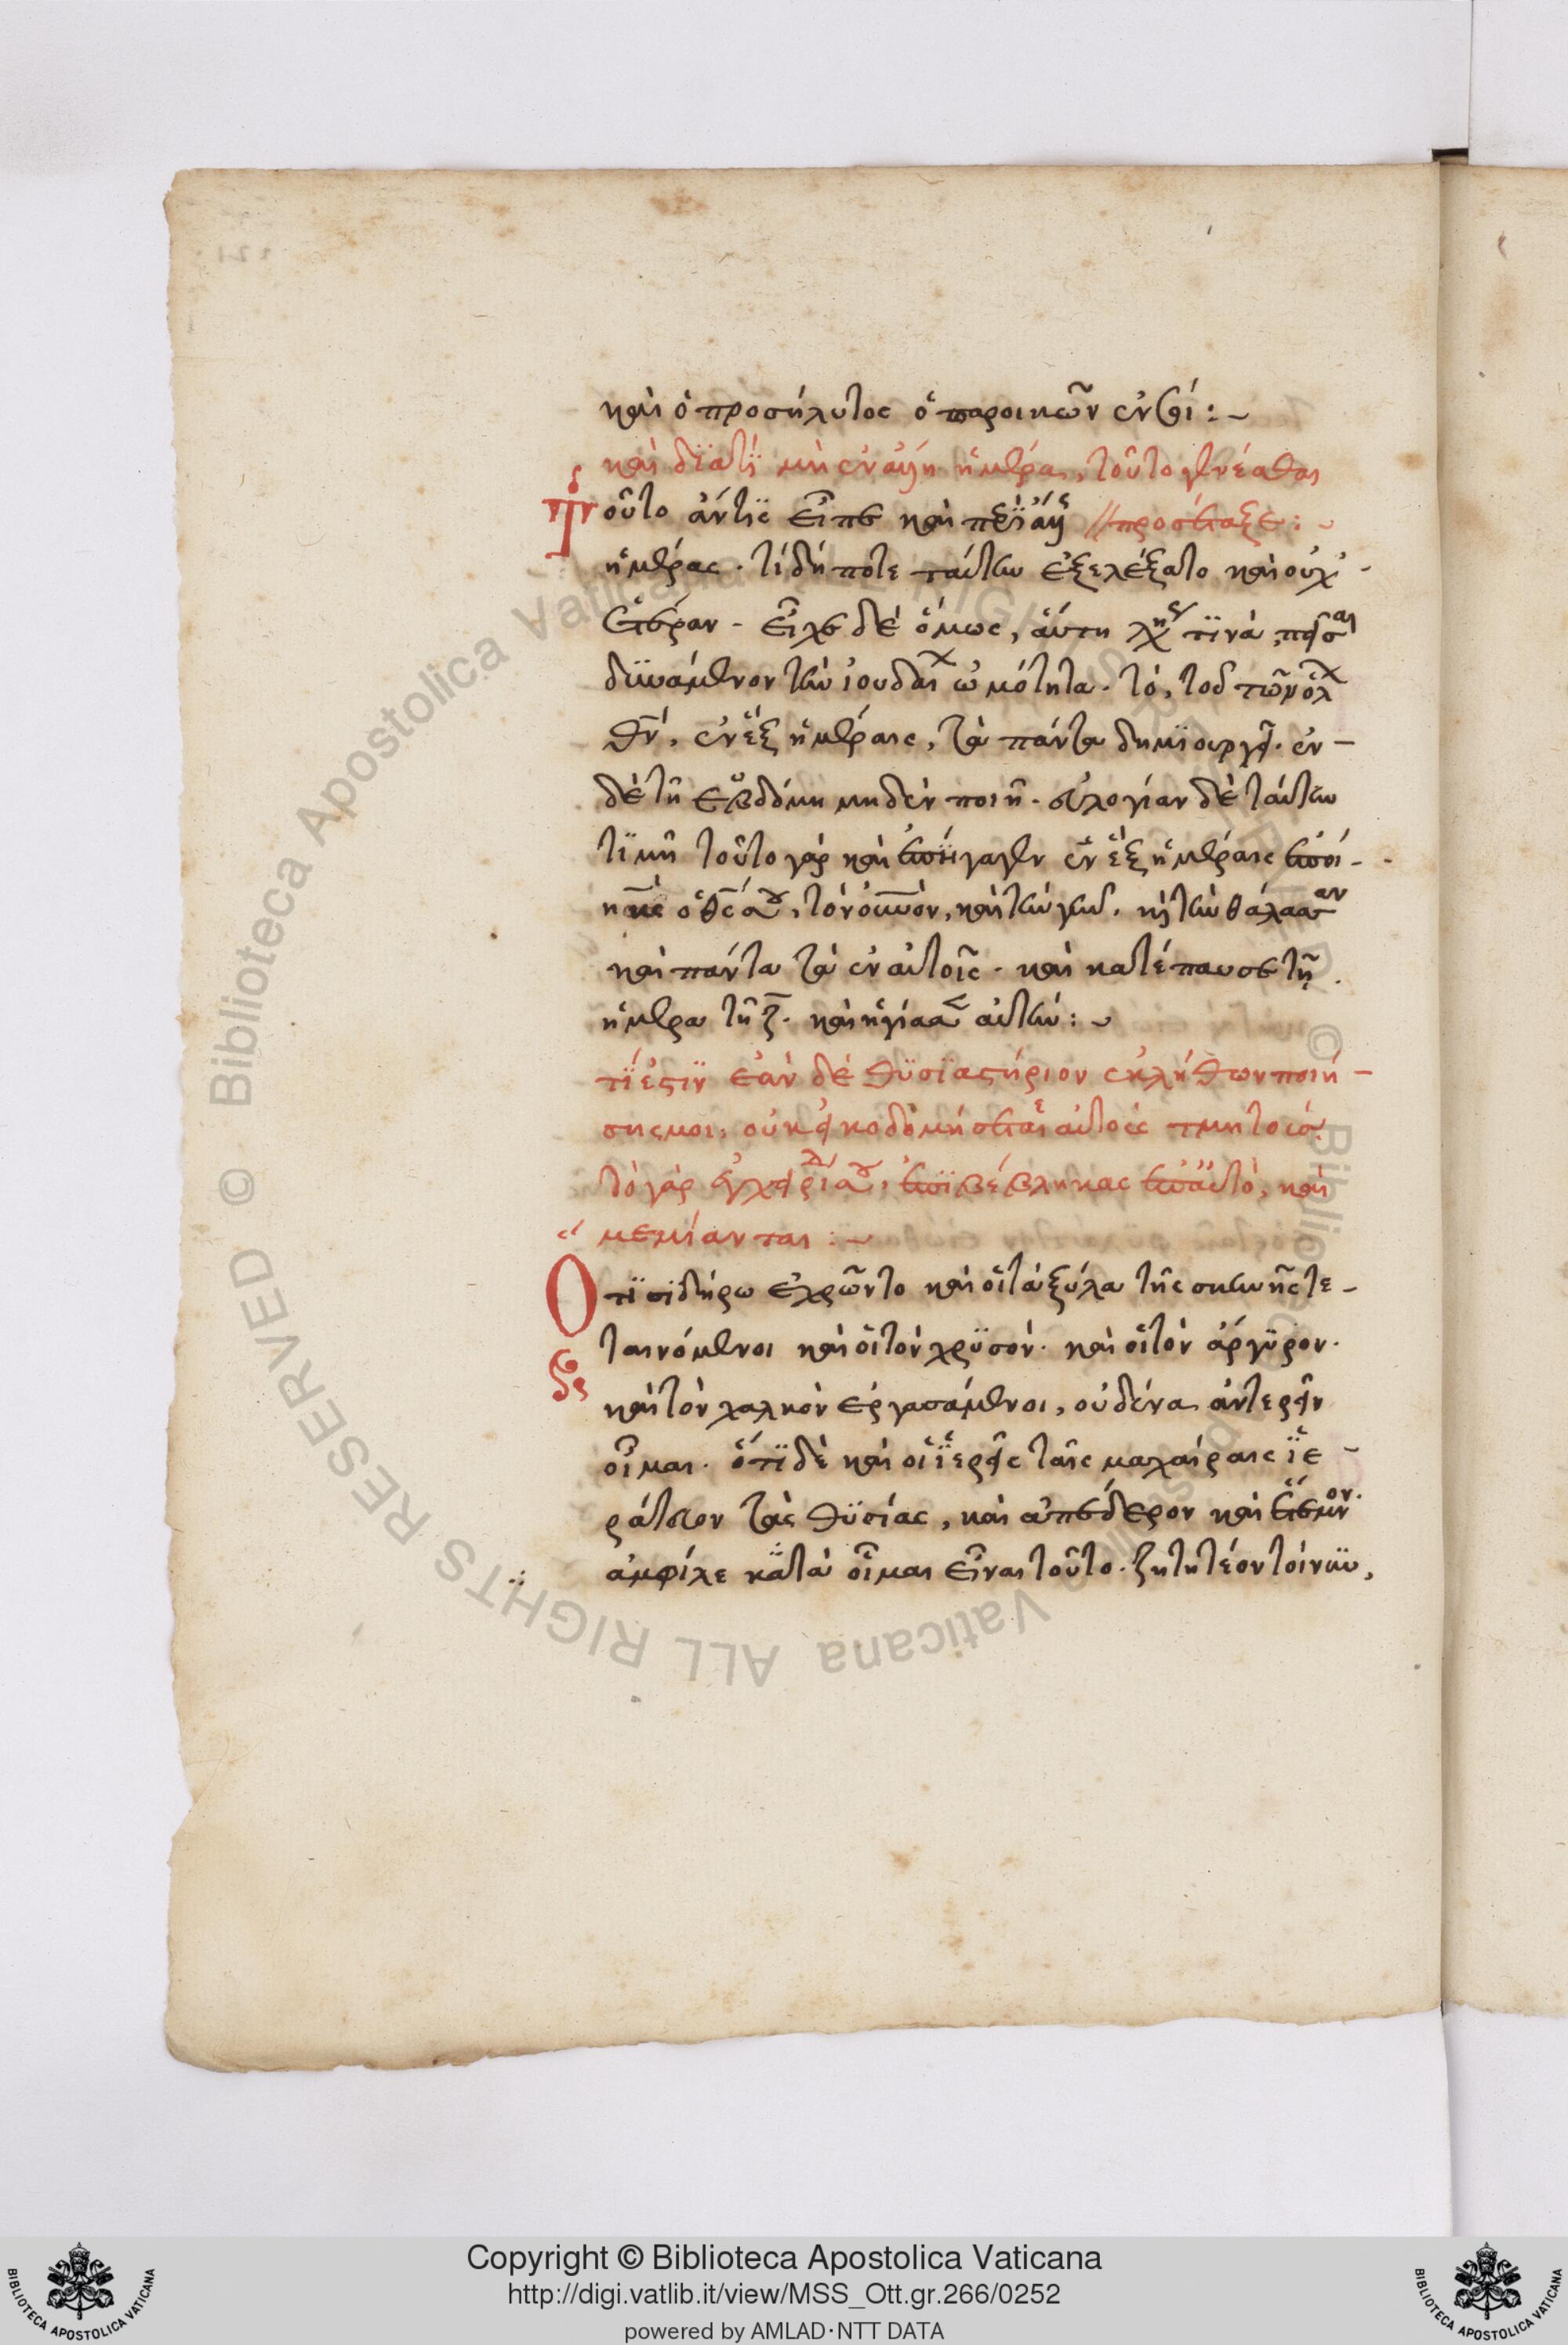 καὶ ὁ προσήλυτος ὁ παροικῶν ἐν σοί:~
καὶ διατί μὴ ἐν ἄλλη ἡμέρα, τοῦτο γενέσθαι
Τοῦτο ἄν τις εἶπε καὶ περὶ ἄλλης // προσέταξε:~
ἡμέρας. τί δήποτε ταύτην ἐξελέξατο καὶ οὐχ
ἑτέραν. εἶχε δὲ ὅμως, αὕτη τινὰ
δυνάμενον τὴν ἰουδαϊκ ὠμότητα. τὸ, τὸν τῶν ὅλ
θν, ἐν ἓξ ἡμέραις, τὰ πάντα δημιουργ. ἐν
δὲ τῆ ἑβδόμη μηδὲν ποιῆ. εὐλογίαν δὲ ταύτην
τιμῆ τοῦτο γὰρ καὶ ἐπήγαγεν ἐν ἓξ ἡμέραις ἐποί
ησε ὁ θς, τὸν οὐνὸν, καὶ τὴν γῆν. κ τὴν θάλασσαν
καὶ πάντα τὰ ἐν αὐτοῖς. καὶ κατέπαυσε τῆ
ἡμέρα τῆ ζ. καὶ ἡγίασεν αὐτήν:~
τί ἐστιν ἐὰν δὲ θυσιαστήριον ἐκ λήθων ποιή
σης μοι, οὐκ οἰκοδομήσεις αὐτοὺς τμητούς
τὸ γὰρ ἐγχειρίδιόν σου, ἐπιβέβληκας ἐπ' αὐτὸ, καὶ
μεμίανται:~
Ὅτι σιδήρω ἐχρῶντο καὶ οἱ τὰ ξύλα τῆς σκηνῆς τε
κταινόμενοι καὶ οἱ τὸν χρυσόν. καὶ οἱ τὸν ἄργυρον.
καὶ τὸν χαλκὸν ἐργασάμενοι, οὐδένα ἀντερεῖν
οἶμαι. ὅτι δὲ καὶ οἱ ἱερεῖς ταῖς μαχαίραις ἱε
ράτευον τὰς θυσίας, καὶ ἀπέδερον καὶ ἔτεμνον.
οἶμαι εἶναι τοῦτο. ζητητέον τοίνυν,
Copyright © Biblioteca Apostolica Vaticana
http://digi.vatlib.it/view/MSS_Ott.gr.266/0252
powered by AMLAD·NTT DATA